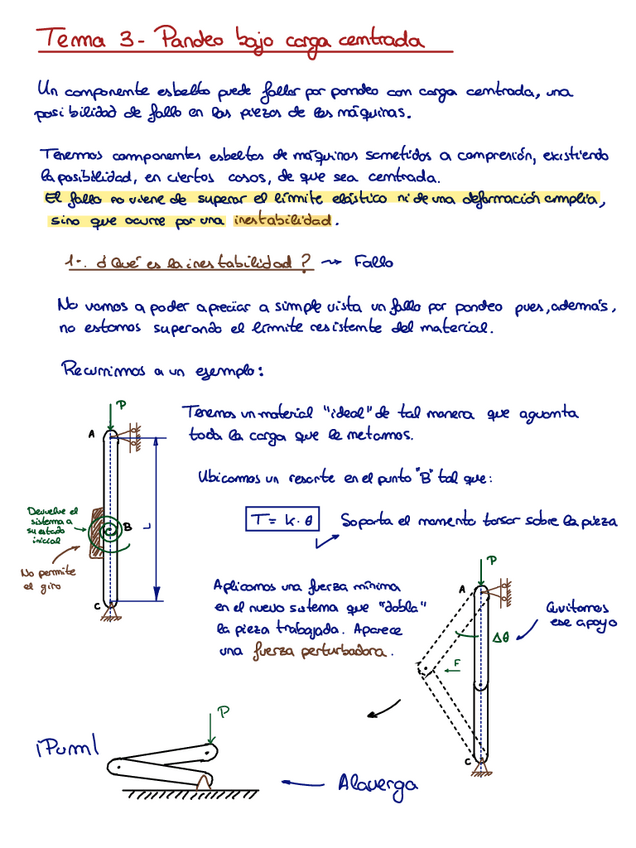 Tema 3- Pandeo bajo carga centrada
Un componente esbelto puede fallar por pandeo con carga centrada, una
posibilidad de fallo en las piezas de las máquinas.
Tenemos componentes esbeltos de máquinas sometidos a compresión, existiendo
la posibilidad, en ciertos casos, de que sea centrada.
El fallo no viene de superar el límite elástico ni de una deformación amplia,
sino que ocurre por una inestabilidad.
1-. ¿Qué es la inestabilidad? → Fallo
No vamos a poder apreciar a simple vista un fallo por pandeo pues, además,
no estamos superando el límite resistente del material.
Recurrimos a un ejemplo:
P
A
Tenemos un material "ideal" de tal manera que aguanta
toda la carga que le metamos.
Ubicamos un resorte en el punto "B" tal que:
Devuelve el
sistema a
su estado
inicial
B
L
T = k·θ
Soporta el momento torsor sobre la pieza
No permite
el giro
C
Aplicamos una fuerza mínima
en el nuevo sistema que "dobla"
la pieza trabajada. Aparece
una fuerza perturbadora.
P
A
Quitamos
ese apoyo
Δθ
F
C
P
¡Pum!
Alaverga